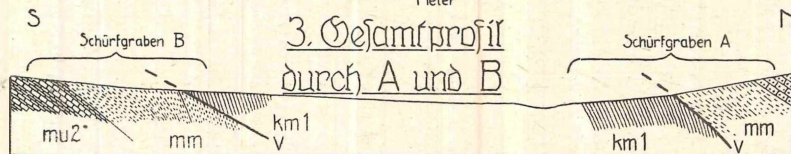 Meter
S
N
Schürfgraben B
3. Gesamtprofil
durch A und B
Schürfgraben A
mu2"
mm
km1
V
km1
mm
V